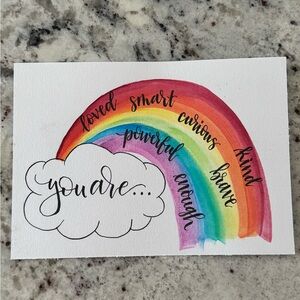 you are...
loved smart curious kind
powerful brave
enough